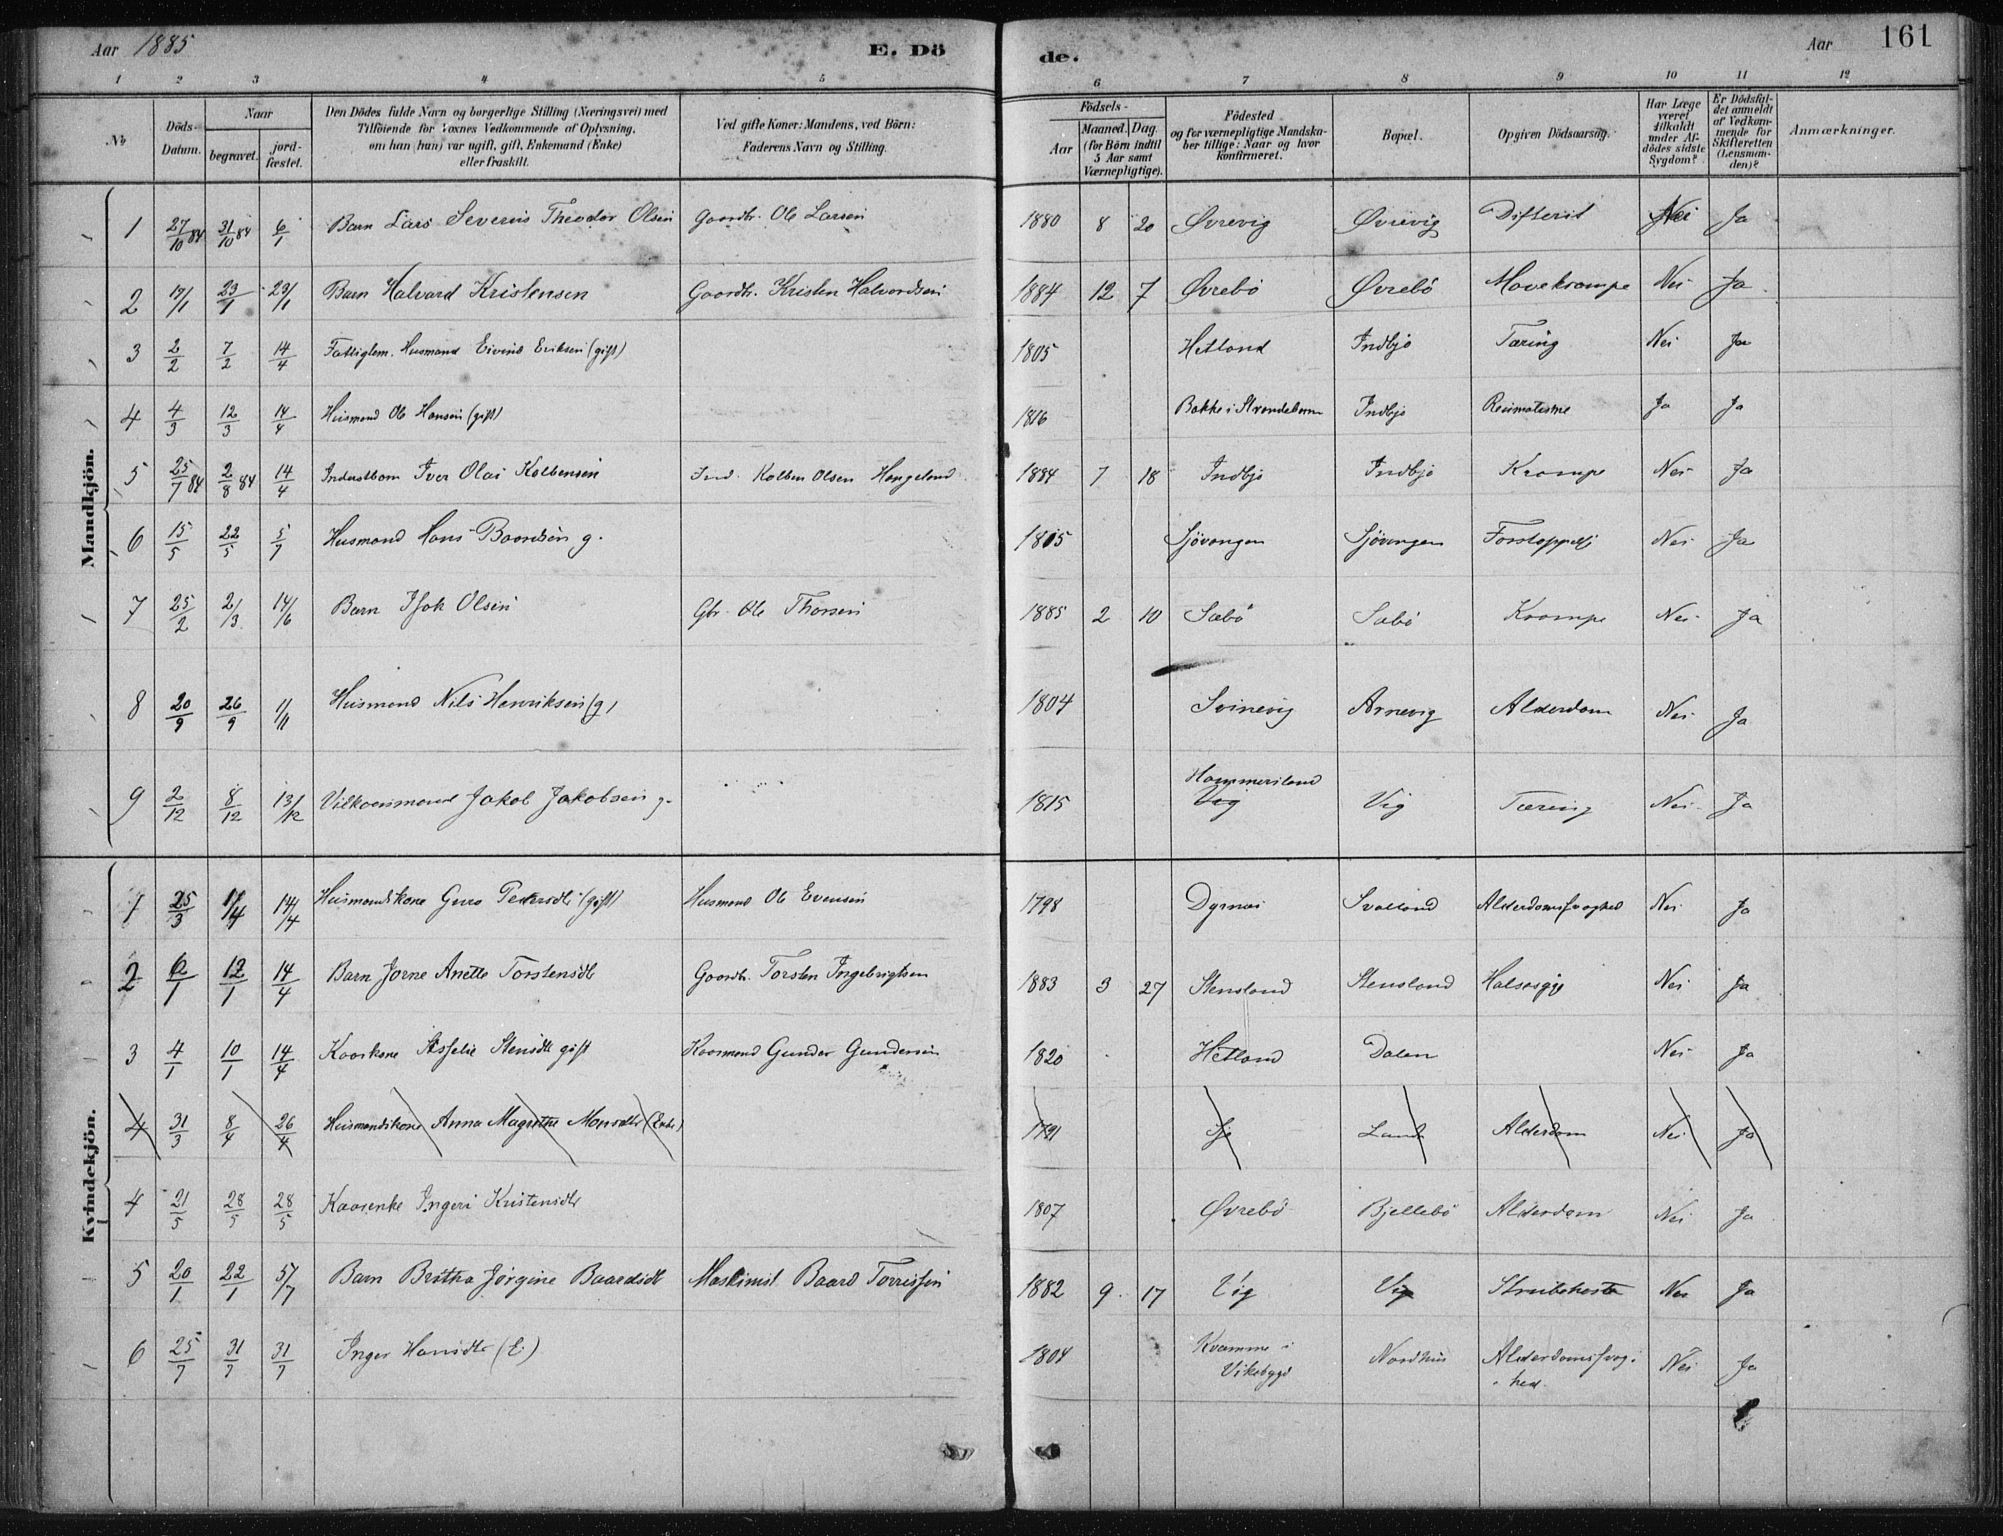 Aar 1885 E. Dö de. Aar 161
1 2 3 4 5 6 7 8 9 10 11 12
No Döds-Datum. Naar begravet. jord-fæstet. Den Dödes fulde Navn og borgerlige Stilling (Næringsvei) med Tilföiende for Voxnes Vedkommende af Oplysning, om han (hun) var ugift, gift, Enkemand (Enke) eller fraskilt. Ved gifte Koner: Mandens, ved Börn: Faderens Navn og Stilling. Födsels- Aar Maaned. Dag. (for Börn indtil 5 Aar samt Værnepligtige). Födested og for værnepligtige Mandska-ber tillige: Naar og hvor konfirmeret. Bopæl. Opgiven Dödsaarsag. Har Læge været tilkaldt under Af-dödes sidste Sygdom? Er Dödsfal-det anmeldt af Vedkom-mende for Skifteretten (Lensman-den)? Anmærkninger.
Mandkjön.
1 27/10 84 31/10 84 6/1 Barn Lars Severin Theodor Olsen Gaardbr. Ole Larsen 1880 8 20 Øvrevig Øvrevig Difterit Nei Ja
2 19/1 23/1 29/1 Barn Halvard Kristensen Gaardbr. Kristen Halvordsen 1884 12 7 Øvrebö Øvrebö Mavekrampe Nei Ja
3 2/2 7/2 14/4 Fattiglem. Husmand Eivind Eriksen (gift) 1805 Hetland Indbjo Tæring Nei Ja
4 4/3 12/3 14/4 Husmand Ole Hansen (gift) 1816 Bakke i Strandebarm Indbjo Reumatisme Ja Ja
5 25/7 84 2/8 84 14/4 Inderstbarn Iver Olai Kolbensen Ind. Kolben Olsen Haugeland 1884 7 18 Indbjo Indbjo Krampe Nei Ja
6 15/5 22/5 5/7 Husmand Hans Baardsen g. 1815 Sjövangen Sjövangen Forstoppelse Nei Ja
7 25/2 2/3 14/6 Barn Isak Olsen Gbr. Ole Thorsen 1885 2 10 Sæbö Sæbö Krampe Nei Ja
8 20/9 26/9 1/11 Husmand Nils Henriksen (g) 1804 Svinevig Arnevig Alderdom Nei Ja
9 2/12 8/12 13/12 Vilkaarsmand Jakob Jakobsen g. 1815 Hammersland Vig Vig Tæring Nei Ja
Kvindekjön.
1 25/3 1/4 14/4 Husmandskone Guro Pedersdtr (gift) Husmand Ole Evensen 1798 Dyrnes Svalland Alderdomssvaghed Nei Ja
2 6/1 12/1 14/4 Barn Jorne Anette Torstensdtr Gaardbr. Torsten Ingebrigtsen 1883 3 27 Stensland Stensland Halsesyge Nei Ja
3 4/1 10/1 14/4 Kaarkone Stensdtr gift Kaarmand Gunder Gundersen 1820 Hetland Dalen Nei Ja
4 31/3 8/4 26/4 Husmandskone Anna Magrethe Monsdtr (Enke) 1791 Land Alderdom Nei Ja
4 21/5 28/5 28/5 Kaarenke Ingeri Kristensdtr 1807 Øvrebö Bjellebö Alderdom Nei Ja
5 20/1 22/1 5/7 Barn Britha Jörgine Baardsdt Maskinist Baard Torrissen 1882 9 17 Vig Vig Strubehoste Nei Ja
6 25/7 31/7 31/7 Inger Hansdtr (E.) 1804 Kvamme i Vikebygd Nordhus Alderdomssvag-hed Nei Ja